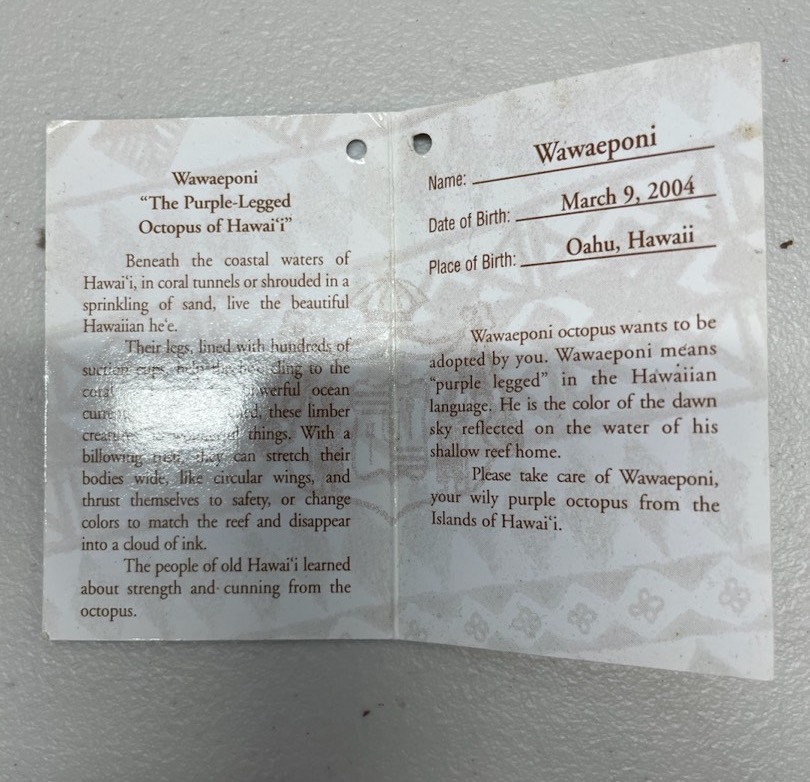 Wawaeponi
“The Purple-Legged
Octopus of Hawai‘i”
Beneath the coastal waters of
Hawai‘i, in coral tunnels or shrouded in a
sprinkling of sand, live the beautiful
Hawaiian he‘e.
Their legs, lined with hundreds of
suction cups, cling to the
ocean
these limber
things. With a
billowing they can stretch their
bodies wide, like circular wings, and
thrust themselves to safety, or change
colors to match the reef and disappear
into a cloud of ink.
The people of old Hawai‘i learned
about strength and cunning from the
octopus.
Name: Wawaeponi
Date of Birth: March 9, 2004
Place of Birth: Oahu, Hawaii
Wawaeponi octopus wants to be
adopted by you. Wawaeponi means
“purple legged” in the Hawaiian
language. He is the color of the dawn
sky reflected on the water of his
shallow reef home.
Please take care of Wawaeponi,
your wily purple octopus from the
Islands of Hawai‘i.